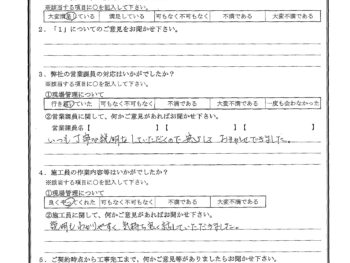 ※該当する項目に○を記入して下さい。
大変満足している 満足している 可もなく不可もなく 不満である 大変不満である
2．「1」についてのご意見をお聞かせ下さい。
3．弊社の営業課員の対応はいかがでしたか？
※該当する項目に○を記入して下さい。
①現場管理について
行き届いていた 可もなく不可もなく 不満である 大変不満である 一度も会わなかった
②営業課員に関して、何かご意見があればお聞かせ下さい。
営業課員名【 】 【 】【 】
いつも丁寧な説明をしていただくので安心しておまかせできました。
4．施工員の作業内容等はいかがでしたか？
※該当する項目に○を記入して下さい。
①現場管理について
良くやってくれた 可もなく不可もなく 不満である 大変不満である
②施工員に関して、何かご意見があればお聞かせ下さい。
説明もわかりやすく 気持ち良く していただきました。
5．ご契約時点から工事完工まで、何かご意見等がありましたらお聞かせ下さい。